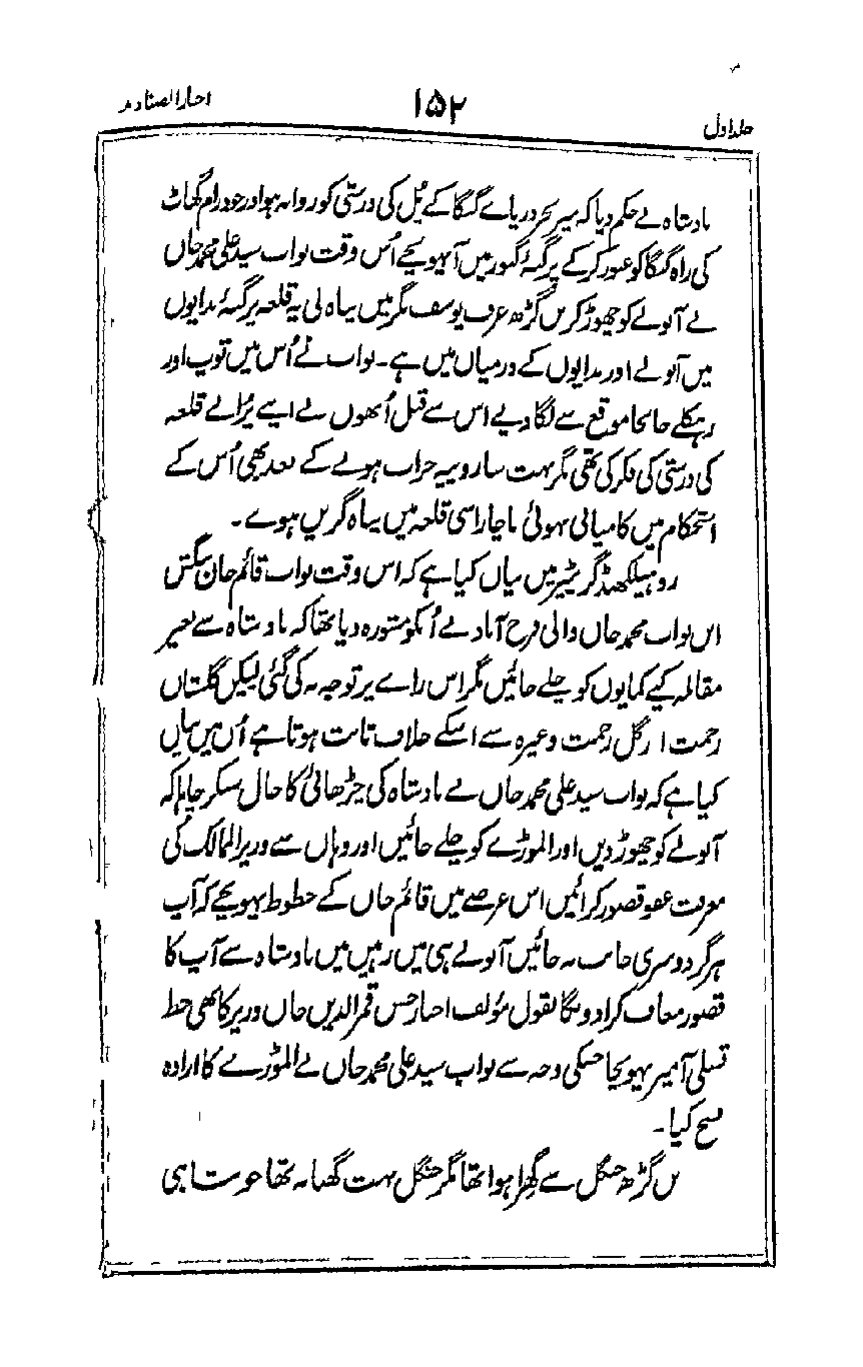 اخبار الصنادید
۱۵۲
جلد اول
بادشاہ نے حکم دیا کہ میر بحر دریاے گنگا کے پُل کی درستی کو روانہ ہو اور خود رام گھاٹ
کی راہ گنگا کو عبور کر کے پرگنۂ گنور میں آ پہونچے اُس وقت نواب سید علی محمد خاں
نے آنولے کو چھوڑ کر بن گڑھ عرف یوسف نگر میں پناہ لی یہ قلعہ پرگنۂ بدایوں
میں آنولے اور بدایوں کے درمیاں میں ہے۔ نواب نے اُس میں توپ اور
رہکلے جابجا موقع سے لگا دیے اس سے قبل اُنھوں نے اپنے پُرانے قلعہ
کی درستی کی فکر کی تھی مگر بہت سا روپیہ خراب ہونے کے بعد بھی اُس کے
استحکام میں کامیابی نہوئی ناچار اسی قلعہ میں پناہ گزیں ہوے۔
روہیلکھنڈ گزیٹیر میں بیاں کیا ہے کہ اس وقت نواب قائم خان بنگش
ابن نواب محمد خاں والی فرخ آباد نے اُنکو مشورہ دیا تھا کہ بادشاہ سے بغیر
مقابلہ کیے کمایوں کو چلے جائیں مگر اس راے پر توجہ نہ کی گئی لیکن گلستاں
رحمت اور گل رحمت وغیرہ سے اسکے خلاف ثابت ہوتا ہے اُن میں بیاں
کیا ہے کہ نواب سید علی محمد خاں نے بادشاہ کی چڑھائی کا حال سنکر چاہا کہ
آنولے کو چھوڑ دیں اور الموڑے کو چلے جائیں اور وہاں سے وزیر الممالک کی
معرفت عفو قصور کرائیں اس عرصے میں قائم خاں کے خطوط پہونچے کہ آپ
ہرگز دوسری جانب نہ جائیں آنولے ہی میں رہیں میں بادشاہ سے آپ کا
قصور معاف کرا دونگا بقول مؤلف اخبار حسن قمر الدین خاں وزیر کا بھی خط
تسلی آمیز پہونچا جسکی وجہ سے نواب سید علی محمد خاں نے الموڑے کا ارادہ
فسخ کیا۔
بن گڑھ جنگل سے گھِرا ہوا تھا مگر جنگل بہت گھنا نہ تھا جو شاہی